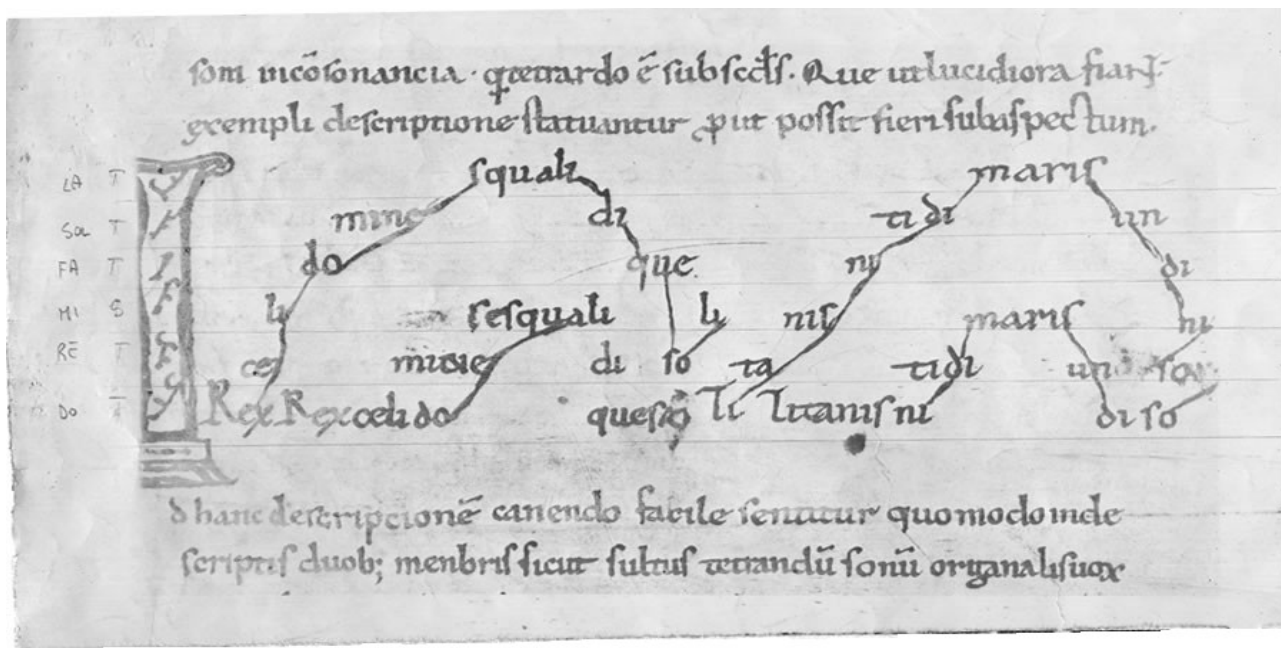 som incōsonancia · q̄ tetrardo ē sub scdis. Que ut lucidiora fiant
exempli descriptione statuantur ꝓut possit fieri sub aspectum.
LA T squali maris
Sol T mine di ti di un
FA T do que ni di
MI S li sesquali li nis maris ni
RE T ce mine di so ta tidi un so
DO T Rex Rex celi do queso li litanis ni di so
d hanc descripcionē canendo facile sentitur quomodo in de
scriptis duob; menbris sicut subtus tetrardū sonū organalis uox